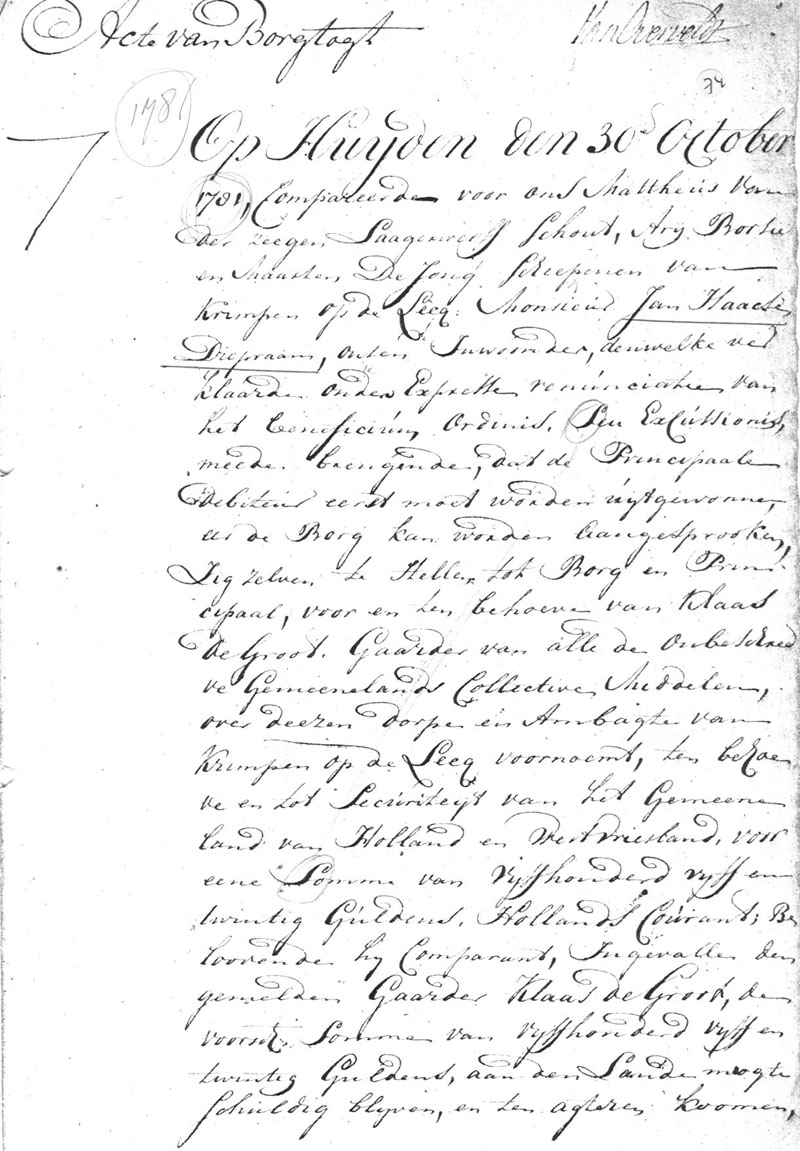 Acte van Borgtogt
Van Overveldt
74
1781
Op Huyden den 30d October
1781, Compareerde voor ons Mattheus Van
der zeegen Laagenwerff Schout, Ary Borsie
en Maarten De Jong Scheepenen van
Krimpen op de Lecq. Monsieur Jan Haacse
Diepraam, onsen Inwoonder, denwelke ver
klaarde onder Expresse renúnciatie van
het beneficiúm Ordinis, Seu Excússionis,
meede brengende, dat de Principaale
Debiteúr eerst moet worden uÿtgewonnen,
eer de Borg kan worden Aangesprooken,
Zig zelven te stellen tot Borg en Prin
cipaal, voor en ten behoeve van Klaas
De Groot. Gaarder van alle de onbeschree
ve Gemeenelands Collective Middelen,
over deezen dorpe en Ambagte van
Krimpen op de Lecq voornoemt, ten behoe
ve en tot Secúriteÿt van het Gemeene
land van Holland en Westvriesland, voor
eene Somme van vÿffhonderd vÿff en
twintig Gúldens, Hollands Coúrant; Be
loovende hÿ Comparant, Ingevalle den
gemelden Gaarder Klaas de Groot, de
voorsz. Somme van vÿffhonderd vÿff en
twintig Gúldens, aan den Lande mogte
schúldig blÿven, en ten agteren koomen,